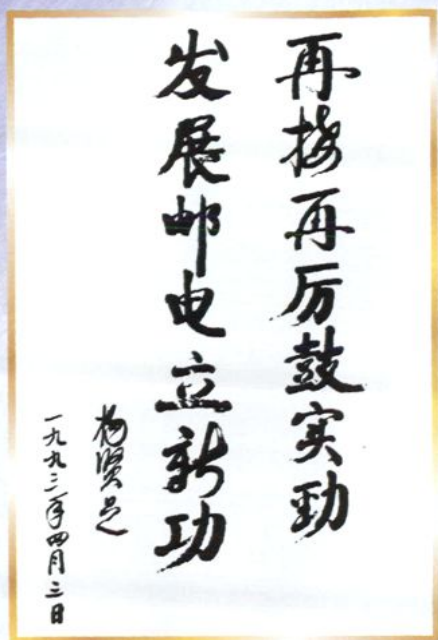 再接再厉鼓实劲
发展邮电立新功
杨贤足
一九九三年四月三日